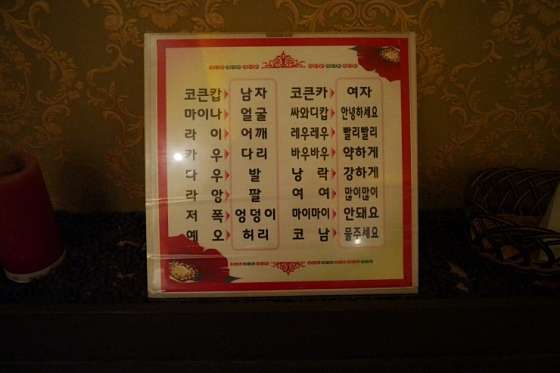 코큰캅 남자 코큰카 여자
마이나 얼굴 싸와디캅 안녕하세요
라이 어깨 레우레우 빨리빨리
카우 다리 바우바우 약하게
다우 발 낭락 강하게
라앙 팔 여여 많이많이
저폭 엉덩이 마이마이 안돼요
예오 허리 코남 물주세요